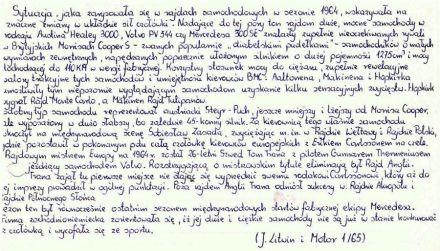 Sytuacja, jaka zaznaczyła się w rajdach samochodowych w sezonie 1964, wskazywała na
znaczne zmiany w układzie sił czołówki. Nadające do tej pory ton rajdom duże, mocne samochody w
rodzaju Austina Healey 3000, Volvo PV 544 czy Mercedesa 300 SE znalazły zupełnie nieoczekiwanych rywali
w Brytyjskich Morrisach Cooper S - zwanych popularnie "diabelskimi pudełkami" - samochodzików o małych
wymiarach zewnętrznych, napędzanych poprzecznie ułożonym silnikiem o dużej pojemności 1275 cm³ i mocy
dochodzącej do 110 KM w wersji fabrycznej. Korzystny stosunek mocy do ciężaru, zupełnie rewelacyjne
własności trakcyjne tych samochodów i umiejętności kierowców BMC: Aaltonena, Makinena i Hopkirka
umożliwiły tym niepozornie wyglądającym samochodom uzyskanie kilku sensacyjnych zwycięstw. Hopkirk
wygrał Rajd Monte Carlo, a Makinen Rajd Tulipanów.
Podobny typ samochodu reprezentował austriacki Steyr-Puch, jeszcze mniejszy i lżejszy od Morrisa Cooper,
ale wyposażony w dużo słabszy, bo zaledwie 45-konny silnik. Za kierownicą tego właśnie samochodu
wskoczył na międzynarodową scenę Sobiesław Zasada, zwyciężając m. in. w Rajdzie Wełtawy i Rajdzie Polski,
gdzie pozostawił w pokonanym polu całą czołówkę kierowców europejskich z Erikiem Carlssonem na czele.
Rajdowym mistrzem Europy na 1964 r. został 26-letni Szwed Tom Trana z pilotem Gunnarem Thermaeniusem
jeżdżący samochodem Volvo. Rozstrzygającą o mistrzowskim tytule eliminacją był Rajd Anglii.
Trana zajął tu pierwsze miejsce nie dając się wyprzedzić swemu rodakowi Carlssonowi, który aż do
tej imprezy prowadził w ogólnej punktacji. Poza rajdem Anglii Trana odniósł sukcesy w: Rajdzie Akropolu i
Rajdzie Północnego Słońca.
Sezon ten był równocześnie ostatnim sezonem międzynarodowych startów fabrycznej ekipy Mercedesa.
Firma zachodnioniemiecka zorientowała się, iż jej duże i ciężkie samochody nie są już w stanie konkurować
z czołówką, i wycofała się ze sportu.
(J. Litwin i Motor 1/65)